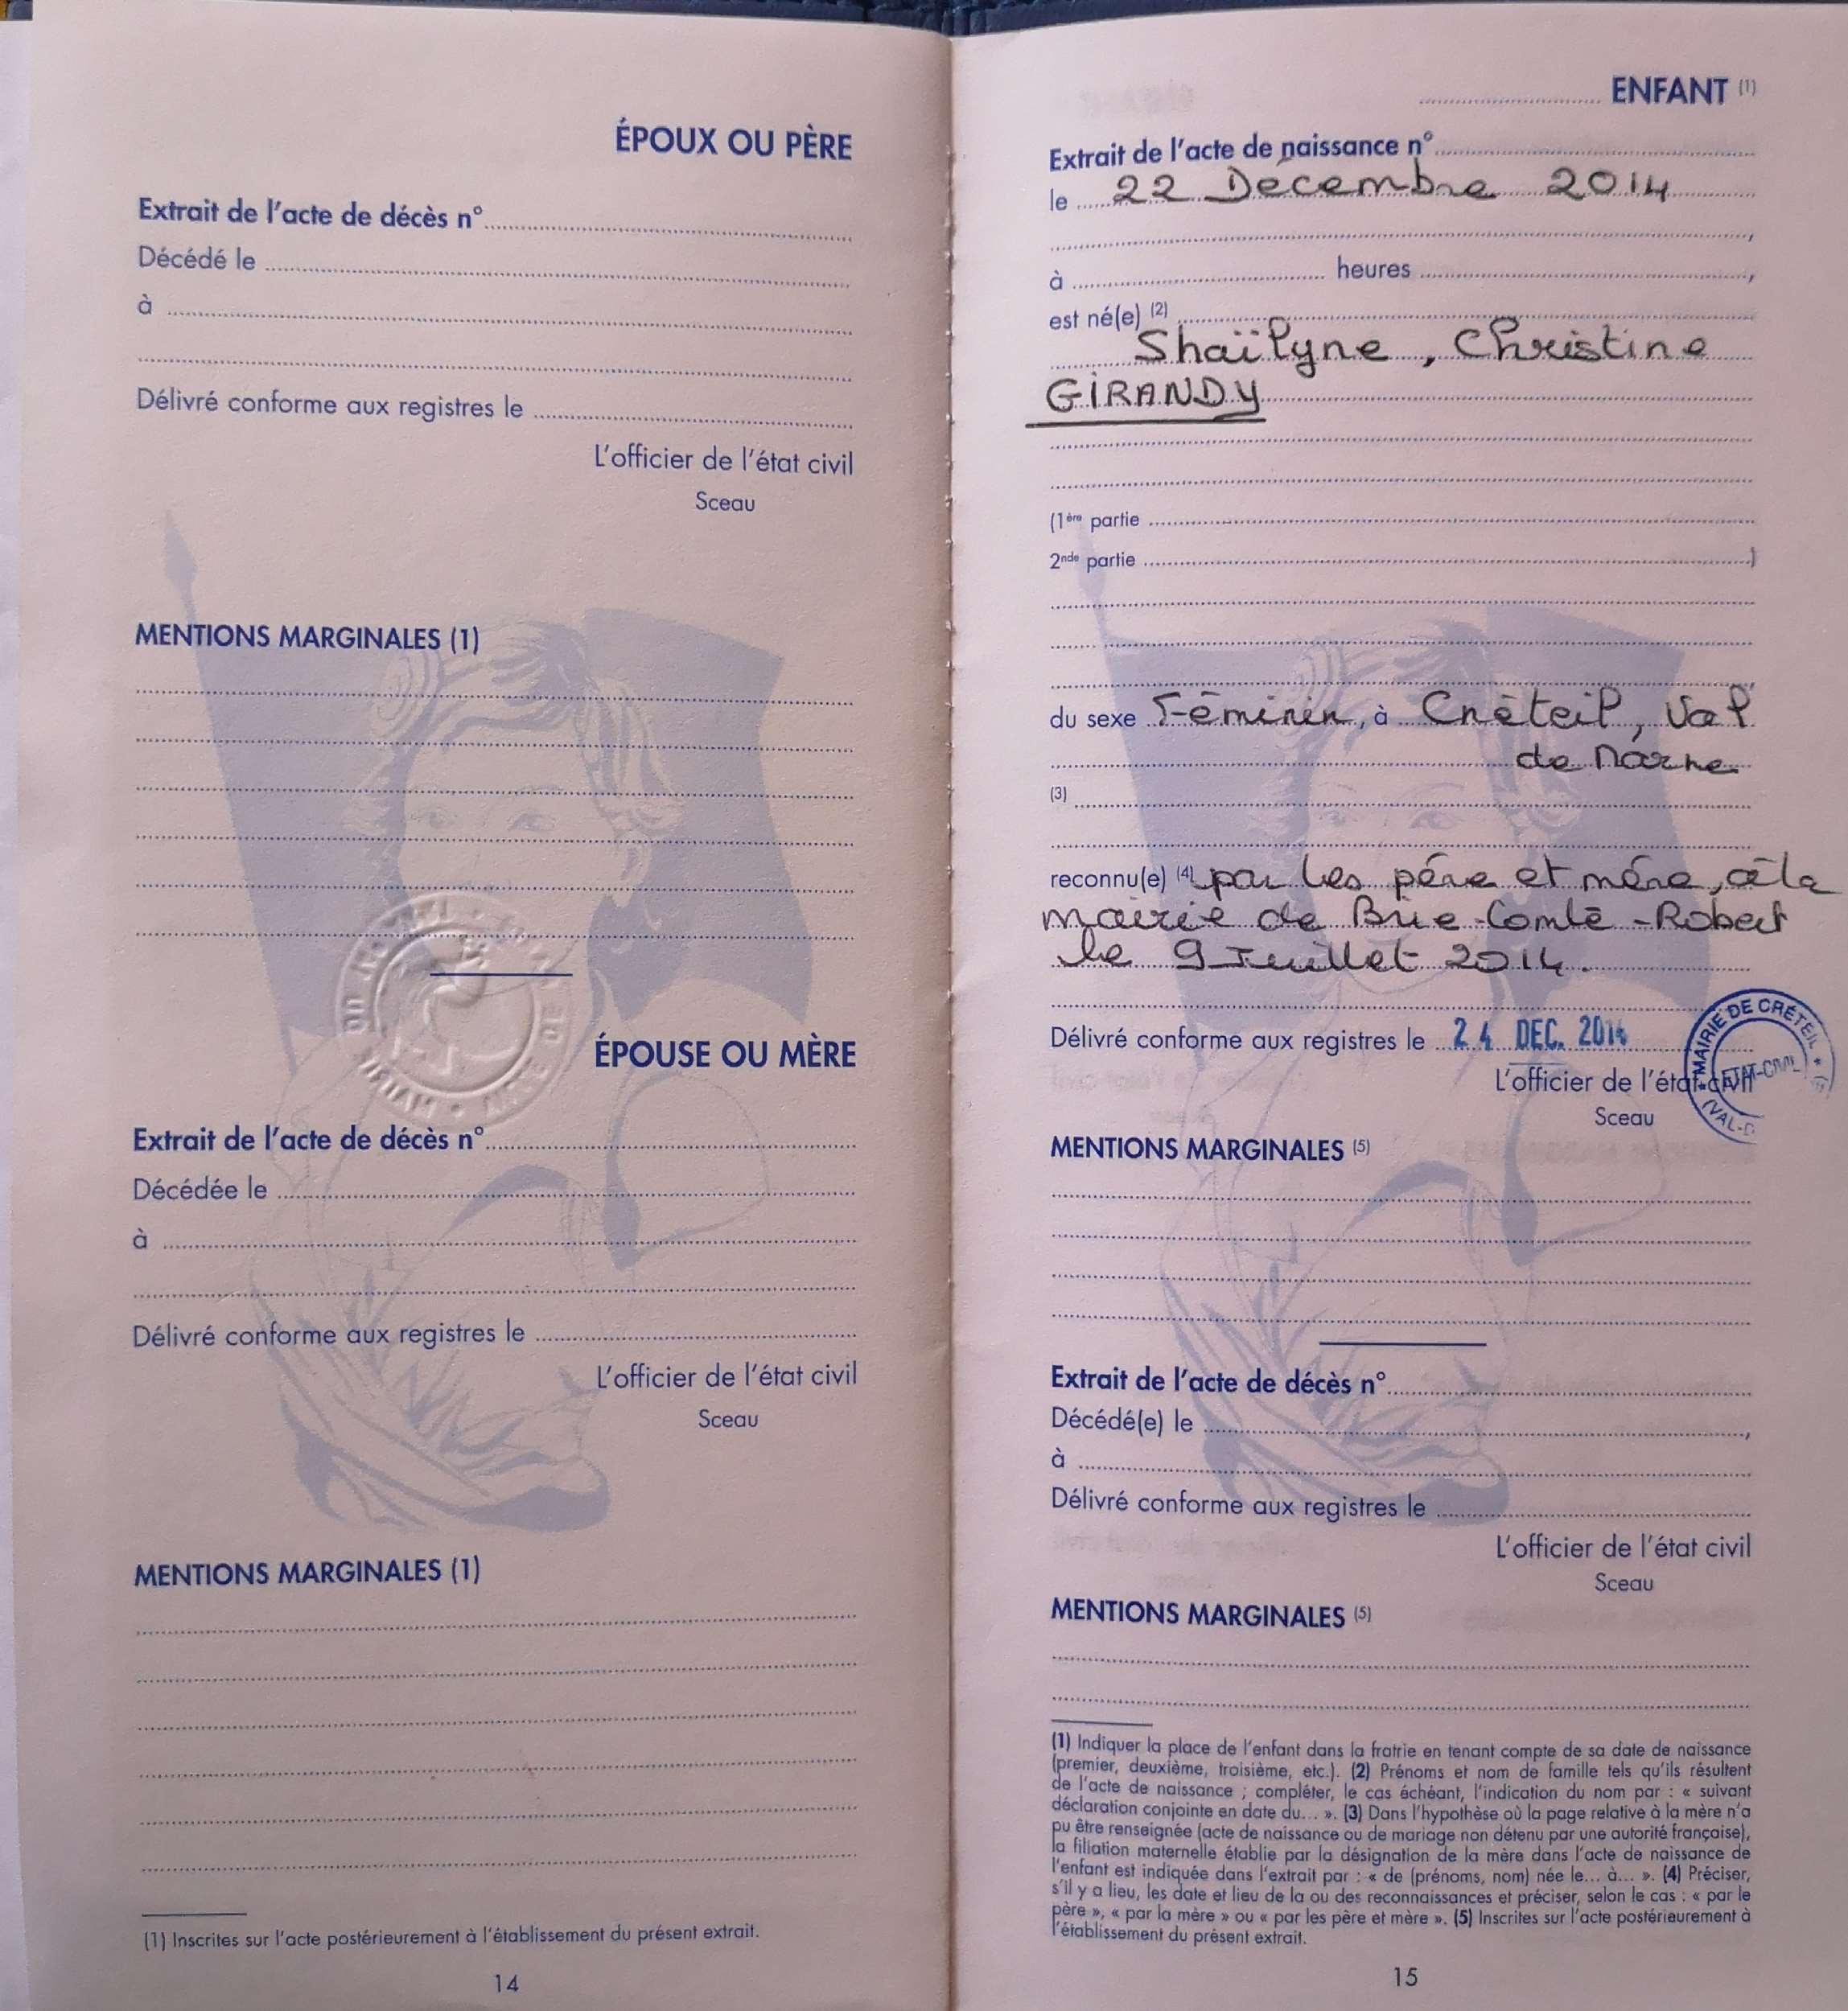 ÉPOUX OU PÈRE
Extrait de l'acte de décès n°
Décédé le
à
Délivré conforme aux registres le
L'officier de l'état civil
Sceau
MENTIONS MARGINALES (1)
ÉPOUSE OU MÈRE
Extrait de l'acte de décès n°
Décédée le
à
Délivré conforme aux registres le
L'officier de l'état civil
Sceau
MENTIONS MARGINALES (1)
(1) Inscrites sur l'acte postérieurement à l'établissement du présent extrait.
14
ENFANT (1)
Extrait de l'acte de naissance n°
le 22 Décembre 2014
,
à heures ,
est né(e) (2)
Shaïlyne, Christine
GIRANDY
(1ère partie
2nde partie )
,
du sexe Féminin, à Créteil, Val
de Marne
(3)
reconnu(e) (4) par les père et mère, à la
mairie de Brie-Comte-Robert
le 9 Juillet 2014.
Délivré conforme aux registres le 24 DEC. 2014
MAIRIE DE CRÉTEIL
ETAT-CIVIL
(VAL-D
L'officier de l'état civil
Sceau
MENTIONS MARGINALES (5)
Extrait de l'acte de décès n°
Décédé(e) le ,
à
Délivré conforme aux registres le
L'officier de l'état civil
Sceau
MENTIONS MARGINALES (5)
(1) Indiquer la place de l'enfant dans la fratrie en tenant compte de sa date de naissance
(premier, deuxième, troisième, etc.). (2) Prénoms et nom de famille tels qu'ils résultent
de l'acte de naissance ; compléter, le cas échéant, l'indication du nom par : « suivant
déclaration conjointe en date du... ». (3) Dans l'hypothèse où la page relative à la mère n'a
pu être renseignée (acte de naissance ou de mariage non détenu par une autorité française),
la filiation maternelle établie par la désignation de la mère dans l'acte de naissance de
l'enfant est indiquée dans l'extrait par : « de (prénoms, nom) née le... à... ». (4) Préciser,
s'il y a lieu, les date et lieu de la ou des reconnaissances et préciser, selon le cas : « par le
père », « par la mère » ou « par les père et mère ». (5) Inscrites sur l'acte postérieurement à
l'établissement du présent extrait.
15